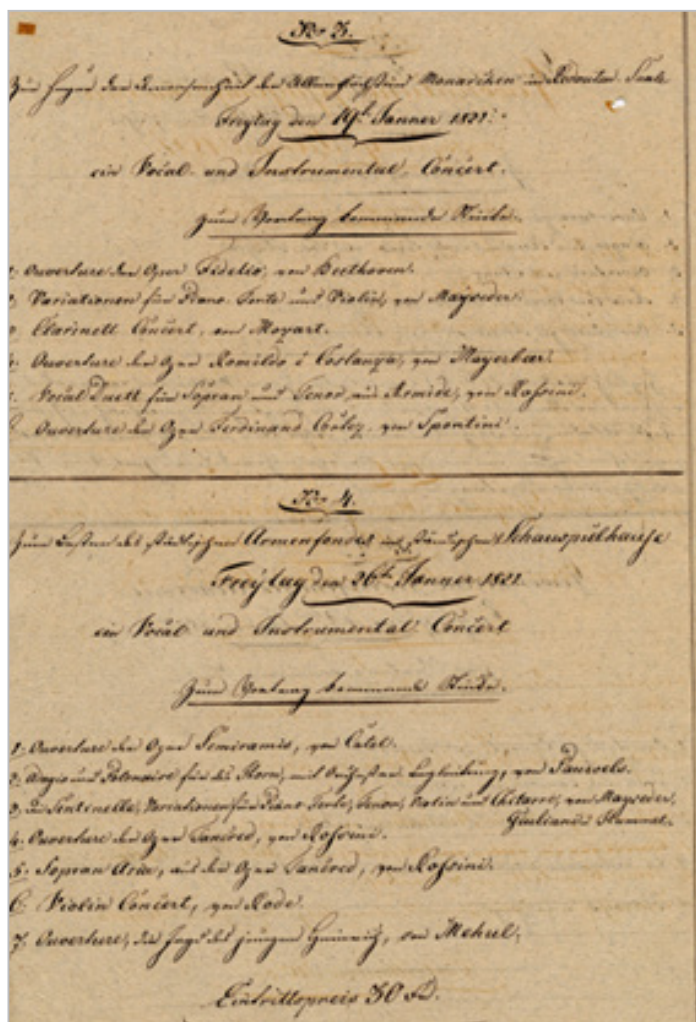 No 3.
Zur Feyer der Anwesenheit der Allerhöchsten Monarchen im Redouten-Saale
Freytag den 19t. Janner 1821.
ein Vocal- und Instrumental-Concert.
Zum Vortrag kommende Stücke.
1. Ouverture der Oper Fidelio, von Beethoven.
2. Variationen für Piano-Forte und Violin, von Mayseder.
3. Clarinett Concert, von Mozart.
4. Ouverture der Oper Romilda e Costanza, von Mayerbeer.
5. Vocal Duett für Sopran und Tenor aus Armide, von Rossini.
6. Ouverture der Oper Ferdinand Cortez, von Spontini.
No 4.
Zum Besten des ständischen Armenfondes im ständischen Schauspielhause
Freÿtag den 26t. Janner 1821
ein Vocal und Instrumental Concert
Zum Vortrag kommende Stücke.
1. Ouverture der Oper Semiramis, von Catel.
2. und Polonaise für das Horn, mit Orchester Begleitung, von
3. Die Sentinelle, Variationen für Piano-Forte, Tenor, Violin und Chitarre, von Mayseder,
Giuliani u Hummel.
4. Ouverture der Oper Tancred, von Rossini.
5. Sopran Aria, aus der Oper Tancred, von Rossini.
6. Violin Concert, von Rode.
7. Ouverture, die Jagd des jungen Heinrich, von Mehul.
Eintrittspreis 30